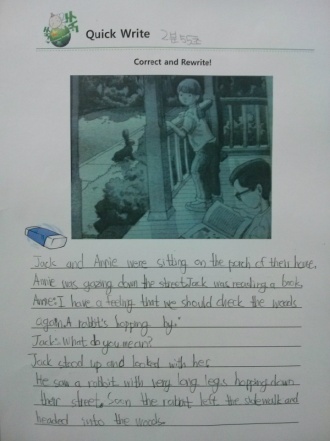 Quick Write 2분 55초
Correct and Rewrite!
Jack and Annie were sitting on the porch of their house.
Annie was gazing down the street. Jack was reading a book.
Annie: I have a feeling that we should check the woods
again. A rabbit's hopping by.
Jack: What do you mean?
Jack stood up and looked with her.
He saw a rabbit with very long legs hopping down
their street. Soon the rabbit left the sidewalk and
headed into the woods.